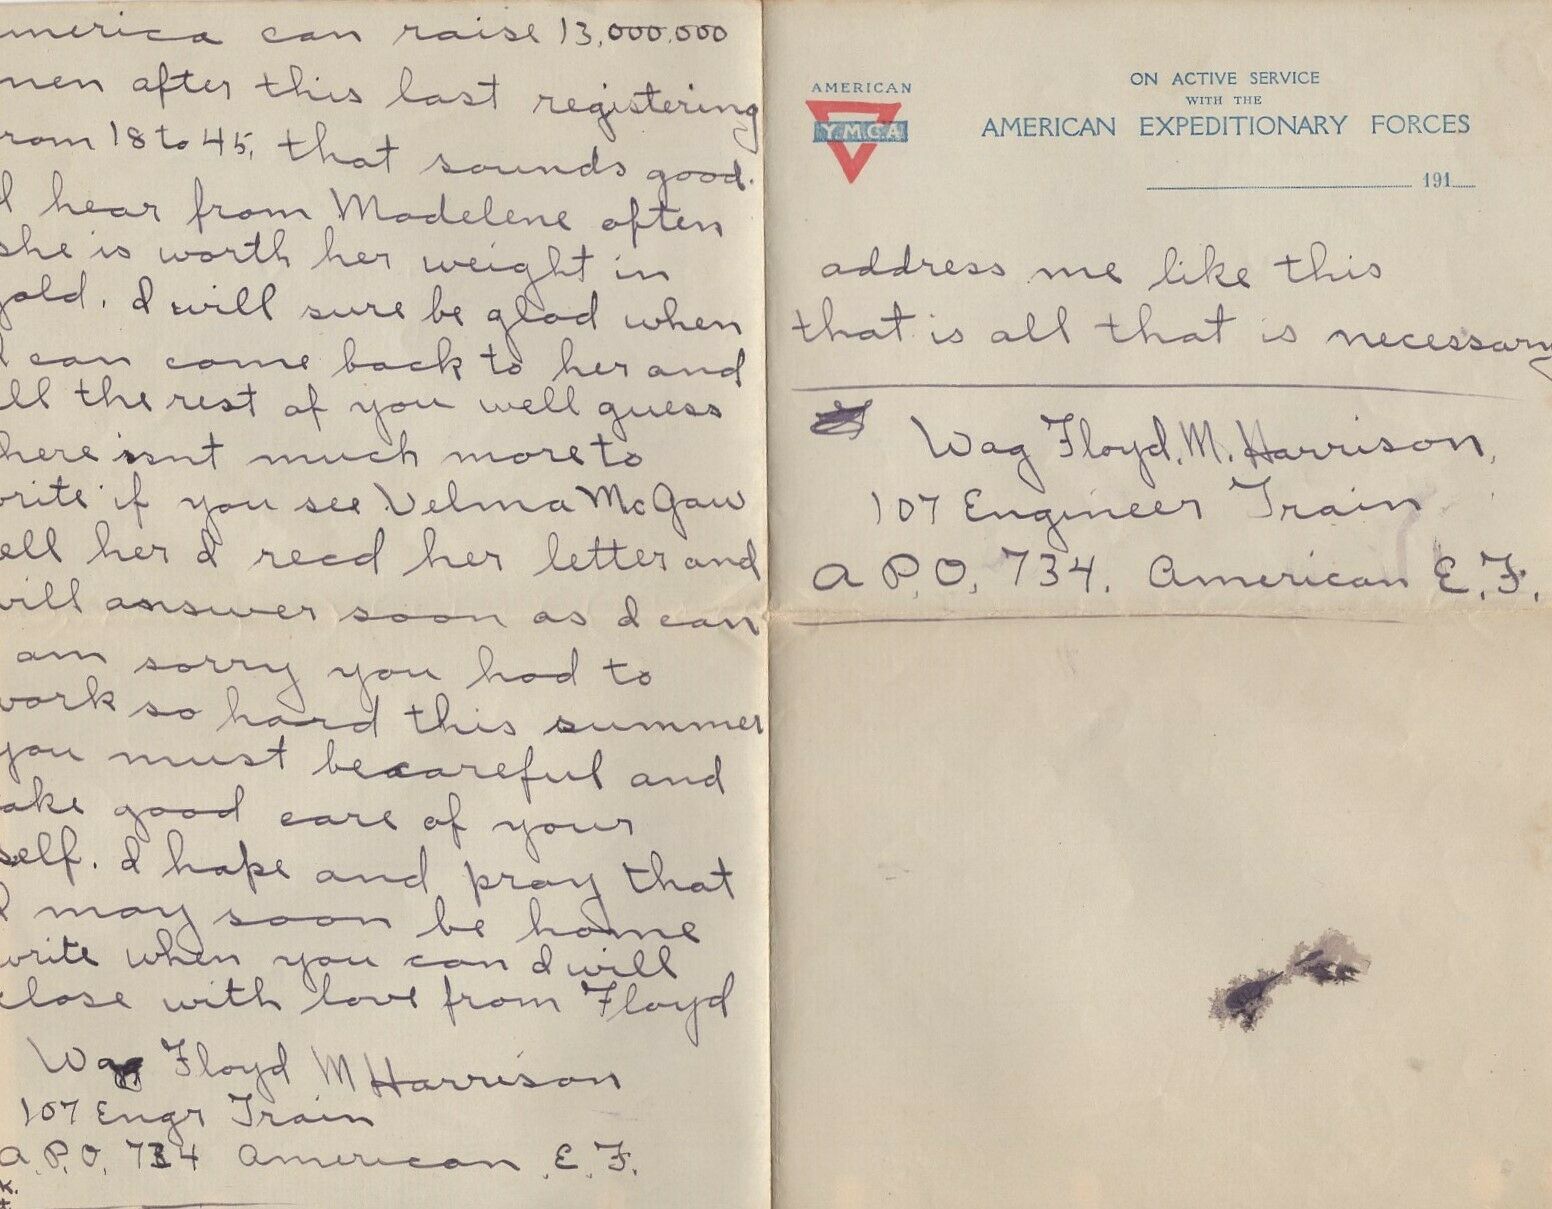 merica can raise 13,000,000
men after this last registering
rom 18 to 45, that sounds good.
I hear from Madelene often
she is worth her weight in
gold. I will sure be glad when
I can come back to her and
ll the rest of you well guess
here isnt much more to
write if you see Velma McGaw
ell her I recd her letter and
will answer soon as I can
am sorry you had to
work so hard this summer
you must be careful and
ake good care of your
self. I hope and pray that
I may soon be home
write when you can I will
close with love from Floyd
Wag Floyd M Harrison
107 Engr Train
A.P.O. 734 American E.F.
AMERICAN
Y.M.C.A
ON ACTIVE SERVICE
WITH THE
AMERICAN EXPEDITIONARY FORCES
191
address me like this
that is all that is necessary
Wag Floyd. M. Harrison,
107 Engineer Train
A P.O. 734. American E.F.